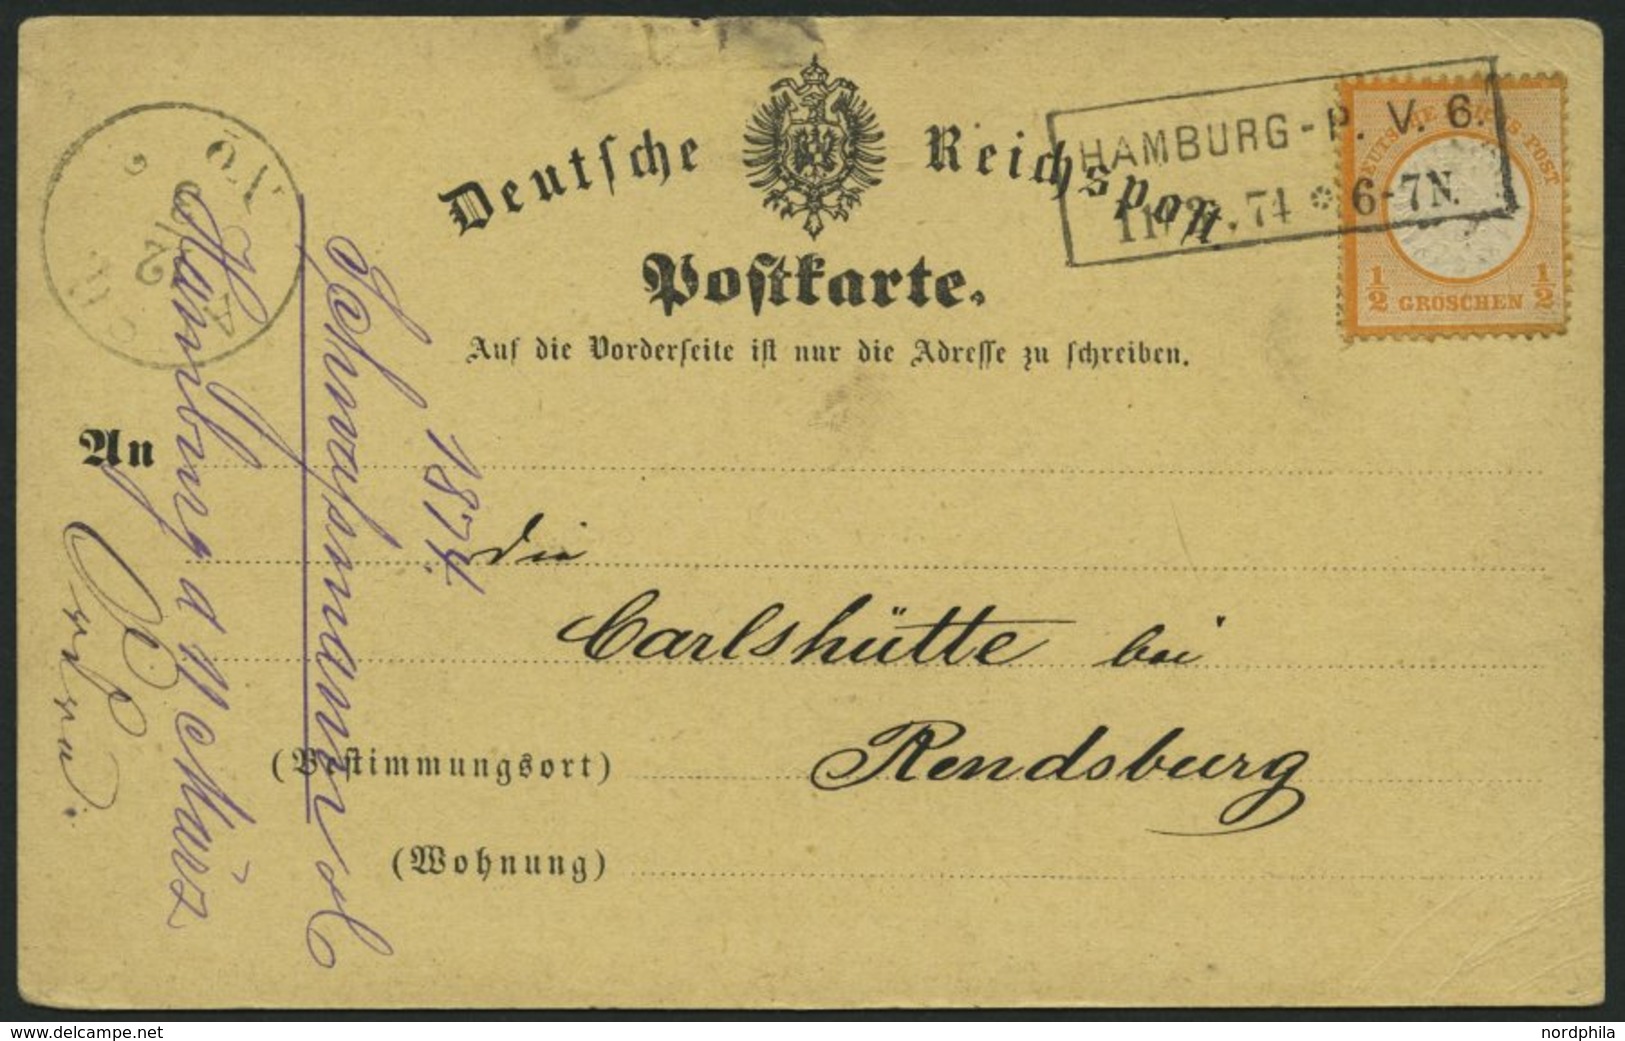 Deutsche Reichspost
Postkarte.
Auf die Vorderseite ist nur die Adresse zu schreiben.
HAMBURG-P. V. 6.
74 * 6-7N.
DEUTSCHE REICHS-POST
½ GROSCHEN ½
An
die
Carlshütte bei
(Bestimmungsort) Rendsburg
(Wohnung)
1874
Hamburg a 11 März
delcampe.net
nordphila